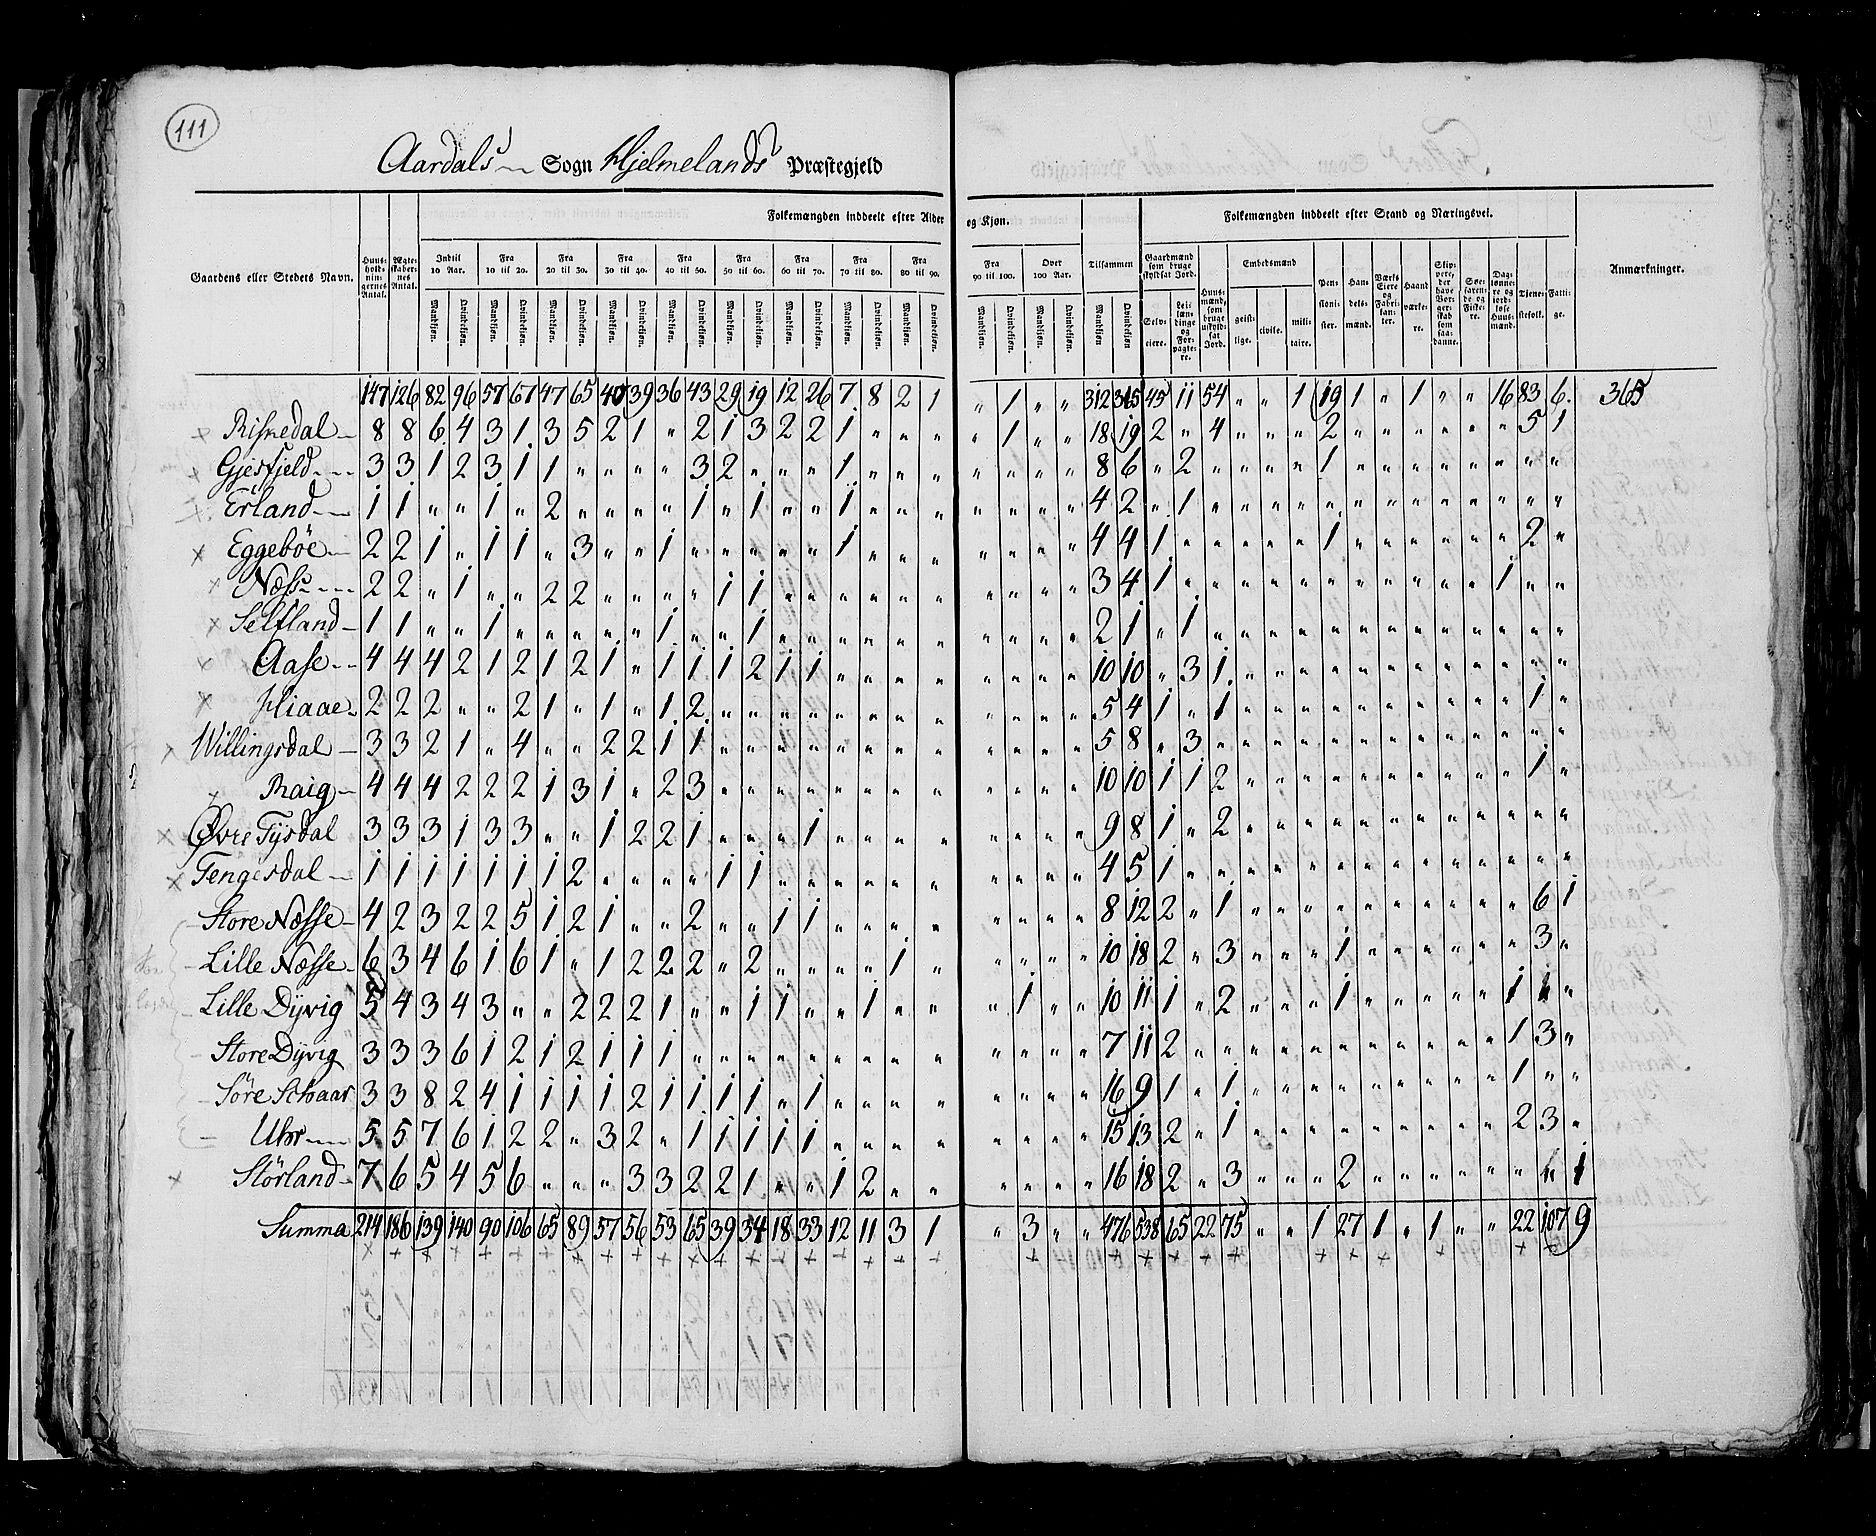 111
Aardals Sogn Hjelmelands Præstegjeld
Folkemængden inddeelt efter Alder og Kjøn.
Folkemængden inddeelt efter Stand og Næringsvei.
Gaardens eller Stedets Navn.
Huusholdningernes Antal.
Ægteskabernes Antal.
Indtil 10 Aar.
Fra 10 til 20.
Fra 20 til 30.
Fra 30 til 40.
Fra 40 til 50.
Fra 50 til 60.
Fra 60 til 70.
Fra 70 til 80.
Fra 80 til 90.
Fra 90 til 100.
Over 100 Aar.
Tilsammen
Mandkjøn. Qvindekjøn.
Gaardmænd som bruge skyldsat Jord.
Selveiere.
Leilændinge og Forpagtere.
Huusmænd, som bruge uskyldsat Jord.
Embedsmænd
geistlige. civile. militaire.
Pensionister.
Handelsmænd.
Værks Eiere og Fabrikanter.
Haandværkere.
Skippere, der have Borgerskab som saadanne.
Søefarende og Fiskere.
Daglønnere og jordløse Huusmænd.
Tjenestefolk.
Fattige.
Anmærkninger.
147 126 82 96 57 67 47 65 40 39 36 43 29 19 12 26 7 8 2 1 " 1 " " 312 345 45 11 54 " " 1 19 1 " 1 " " 16 83 6. 365
Risnedal 8 8 6 4 3 1 3 5 2 1 " 2 1 3 2 2 1 " " " " 1 " " 18 19 2 " 4 " " " 2 " " " " " " 5 1
Gjesfjeld 3 3 1 2 3 1 1 " " " " 3 2 " " " 1 " " " " " " " 8 6 " 2 " " " " 1 " " " " " " " "
Erland 1 1 " " 1 " 2 " " " " 1 " 1 " " 1 " " " " " " " 4 2 " 1 " " " " " " " " " " " " "
Eggeböe 2 2 1 " 1 1 " 3 " " 1 " " " " " 1 " " " " " " " 4 4 1 " " " " " 1 " " " " " " 2 "
Næss 2 2 " 1 " " 2 2 " " " " 1 1 " " " " " " " " " " 3 4 1 " " " " " " " " " " " 1 " "
Selfland 1 1 " " 1 " " " " " 1 " " 1 " " " " " " " " " " 2 1 " 1 " " " " " " " " " " " " "
Aase 4 4 4 2 1 2 1 2 1 " 1 1 1 2 1 1 " " " " " " " " 10 10 " 3 1 " " " " " " " " " " " "
Hiaae 2 2 2 " " 2 1 " 1 " 1 2 " " " " " " " " " " " " 5 4 1 " 1 " " " " " " " " " " 1 "
Willingsdal 3 3 2 1 " 4 " " 2 2 1 1 " " " " " " " " " " " " 5 8 " 3 " " " " " " " " " " " " "
Raig 4 4 4 2 2 2 1 3 1 " 2 3 " " " " " " " " " " " " 10 10 1 1 2 " " " " " " " " " " 1 "
Øvre Tysdal 3 3 3 1 3 3 " " 1 2 2 1 " " " 1 " " " " " " " " 9 8 1 " 2 " " " " " " " " " " " "
Tengesdal 1 1 1 1 1 1 1 2 " " " " 1 1 " " " " " " " " " " 4 5 1 " " " " " " " " " " " " " "
Store Næsse 4 2 3 2 2 5 1 2 1 " " 2 " " 1 1 " " " " " " " " 8 12 2 " 1 " " " " " " " " " " 6 1
Lille Næsse 6 3 4 6 1 6 1 " 1 2 2 2 " 2 " " " " 1 " " " " " 10 18 2 " 3 " " " 1 " " " " " " 3 "
Lille Dÿvig 5 4 3 4 3 " " 2 2 2 1 " " 1 1 " " 1 " " " 1 " " 10 11 1 " 2 " " " 1 " " " " " 1 1 "
Store Dÿvig 3 3 3 6 1 2 1 2 1 1 1 " " " " " " " " " " " " " 7 11 2 " " " " " " " " " " " 1 3 "
Söre Schaar 3 3 8 2 4 1 1 1 1 2 1 1 1 1 " 1 " " " " " " " " 16 9 1 " 1 " " " " " " " " " 1 " "
Uhr 5 5 7 6 1 2 2 " 3 2 " 1 1 1 1 1 " " " " " " " " 15 13 2 " 1 " " " " " " " " " 2 3 "
Störland 7 6 5 4 5 6 " " " 3 3 2 2 1 " " 1 2 " " " " " " 16 18 2 " 3 " " " 2 " " " " " " 1 1
Summa 214 186 139 140 90 106 65 89 57 56 53 65 39 34 18 33 12 11 3 1 " 3 " " 476 538 65 22 75 " " 1 27 1 " 1 " " 22 107 9